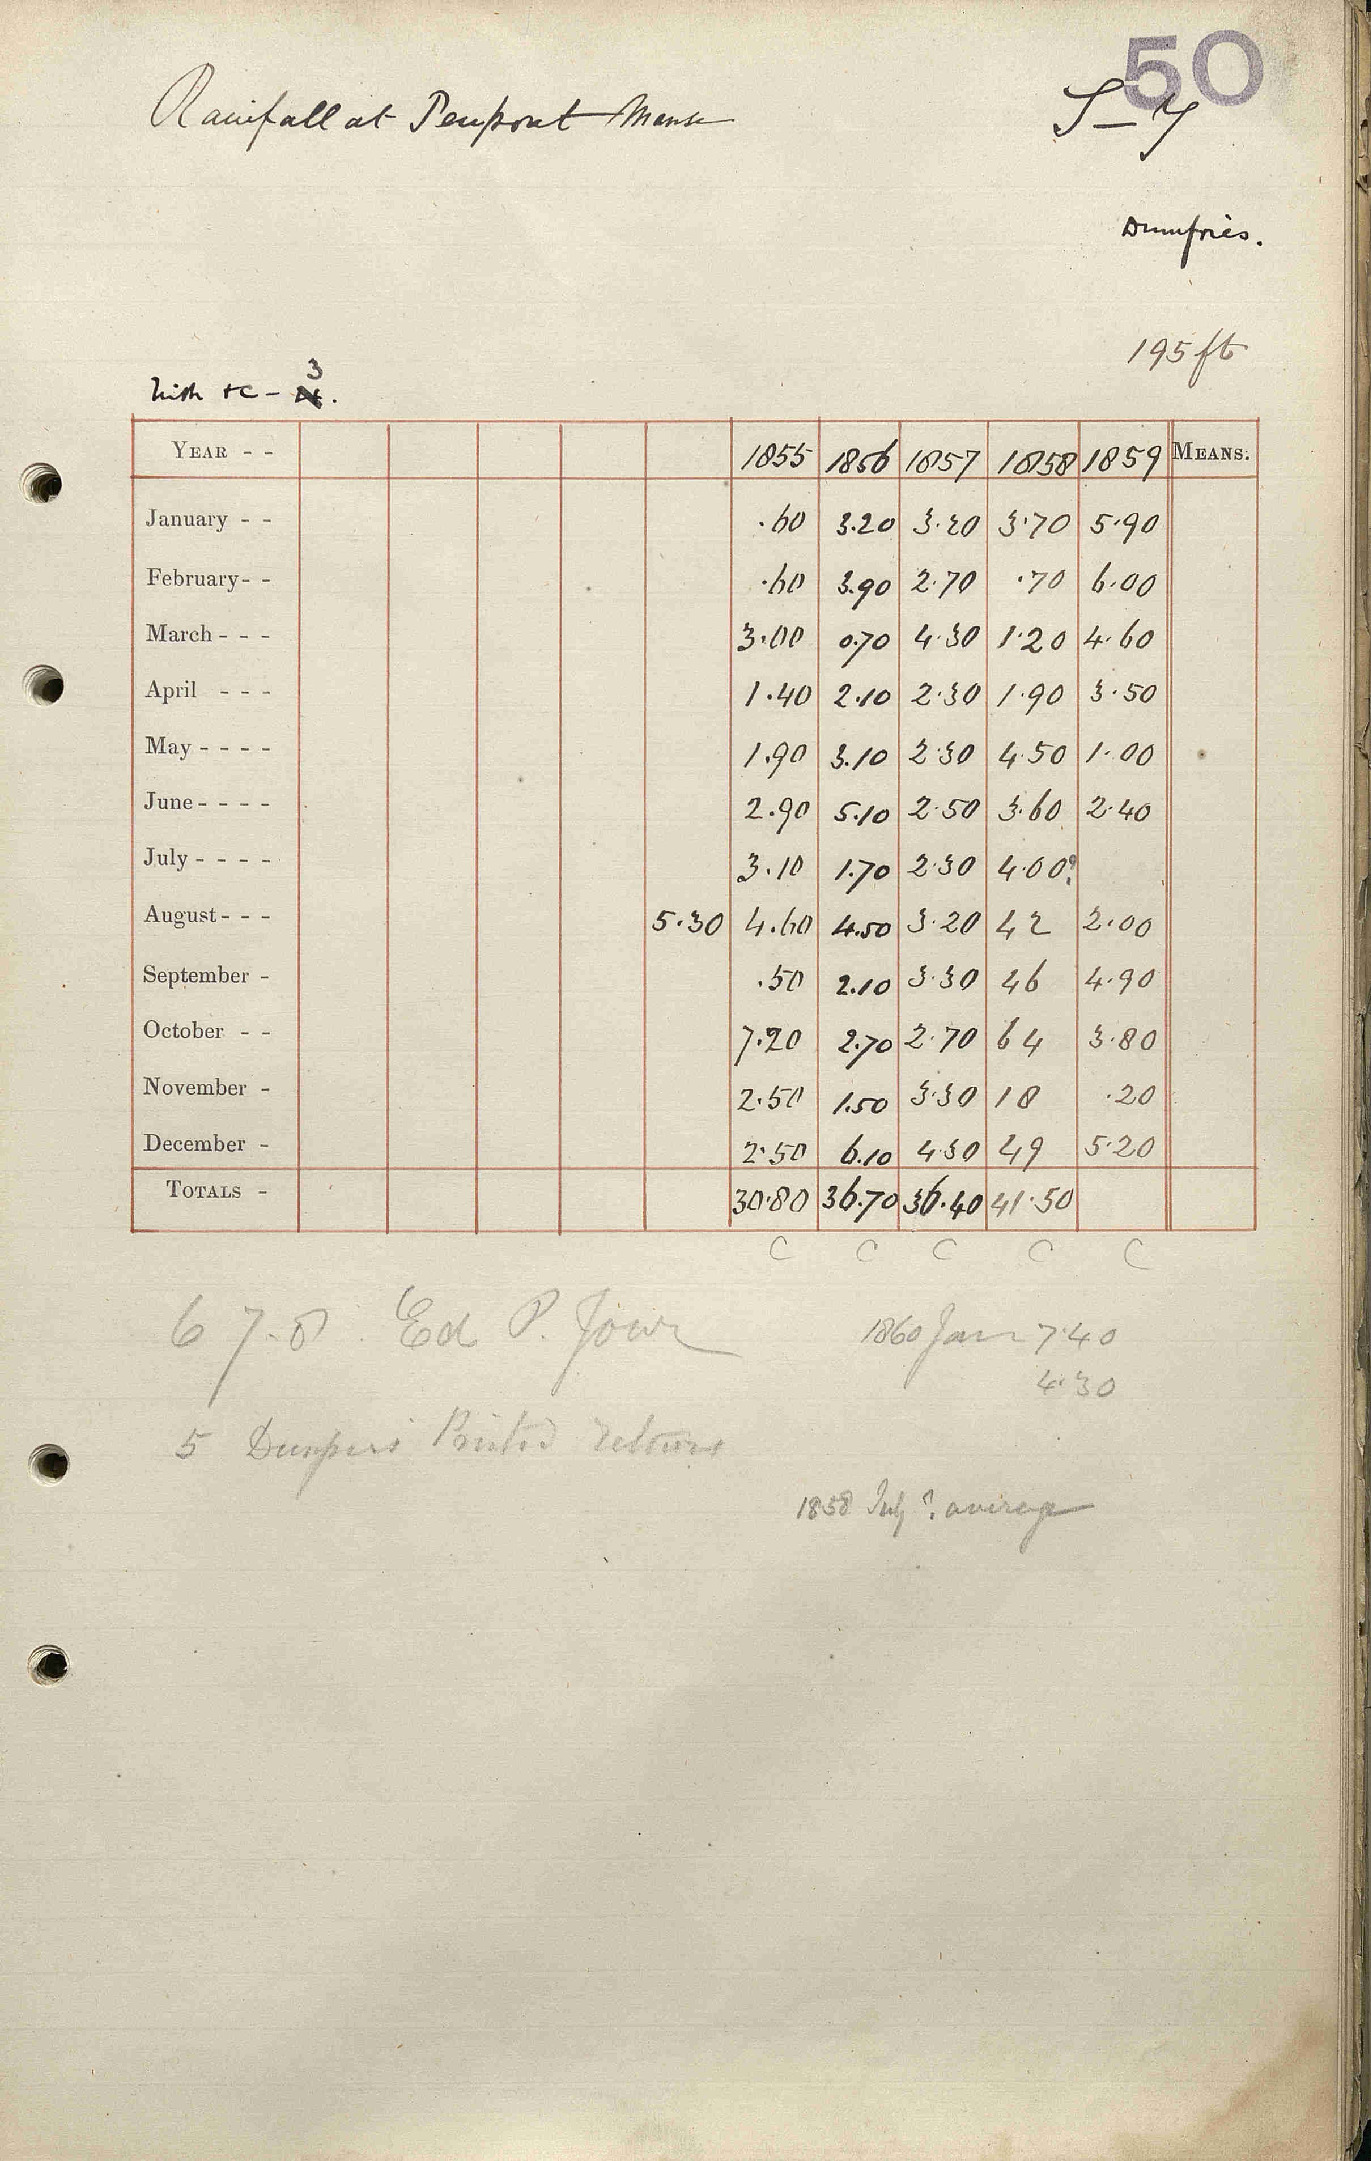 50
Rainfall at Penpont Manse S-7
Dumfries.
195 ft
3
Nith &c -
YEAR - - 1855 1856 1857 1858 1859 MEANS.
January - - .60 3.20 3.20 3.70 5.90
February - - .60 3.90 2.70 .70 6.00
March - - - 3.00 0.70 4.30 1.20 4.60
April - - - 1.40 2.10 2.30 1.90 3.50
May - - - - 1.90 3.10 2.30 4.50 1.00
June - - - - 2.90 5.10 2.50 3.60 2.40
July - - - - 3.10 1.70 2.30 4.00?
August - - - 5.30 4.60 4.50 3.20 42 2.00
September - .50 2.10 3.30 46 4.90
October - - 7.20 2.70 2.70 64 3.80
November - 2.50 1.50 3.30 18 .20
December - 2.50 6.10 4.30 49 5.20
TOTALS - 30.80 36.70 36.40 41.50
C C C C C
6 7.8 Ed P. Jour 1860 Jan 7.40
4.30
5 Printed returns
1858 July ? average